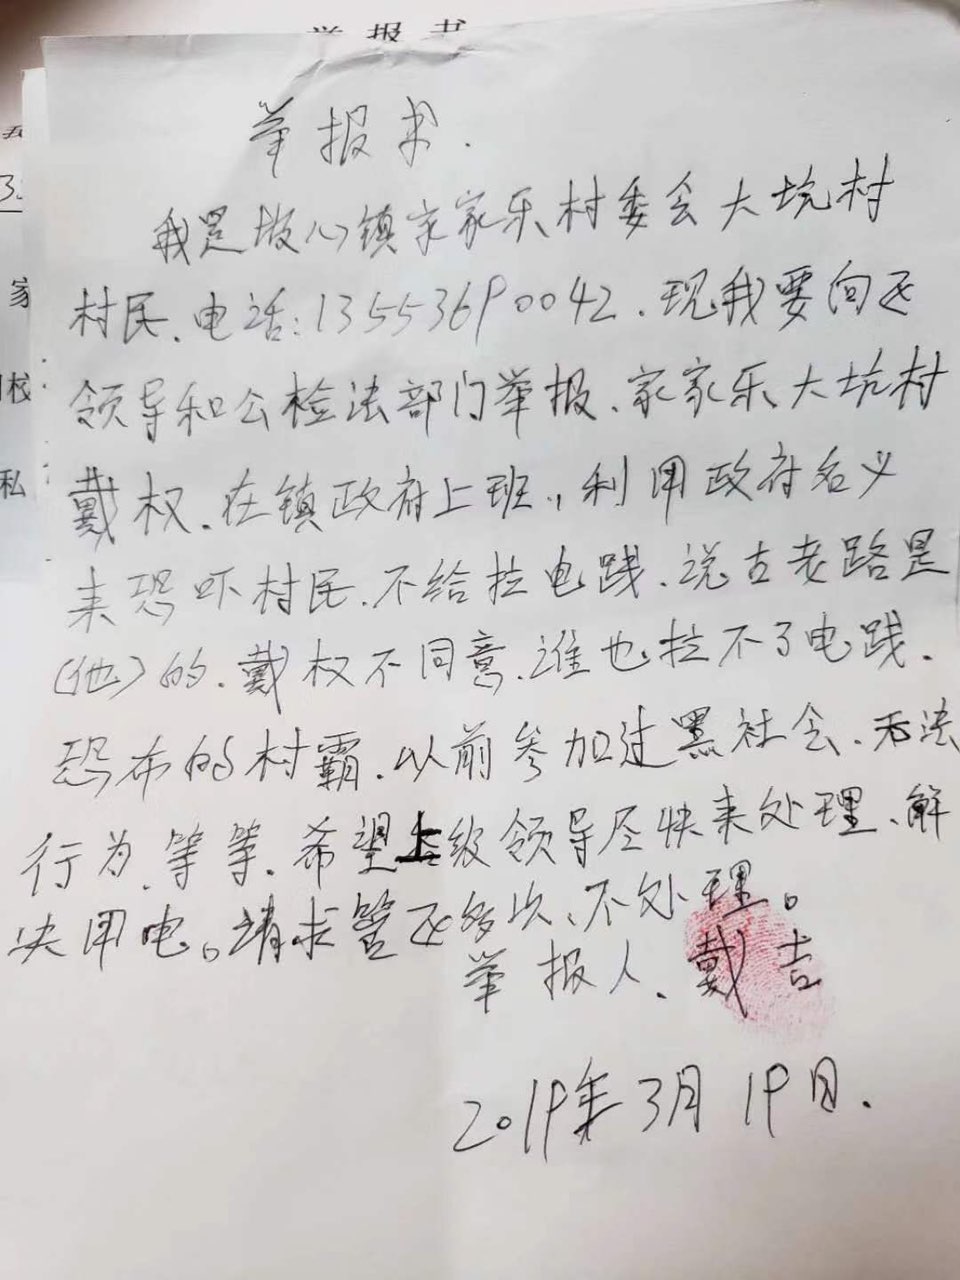 举报书
举报书.
我是放心镇家家乐村委会大坑村
村民、电话:13553690042、现我要向区
领导和公检法部门举报、家家乐大坑村
戴权、在镇政府上班、,利用政府名义
来恐吓村民、不给拉电践、说古老路是
(他)的、戴权不同意、谁也拉不了电践.
恐布的村霸、以前参加过黑社会、无法
行为、等等、希望上级领导尽快来处理、解
决用电。请求管区多次、不处理。
举报人、戴吉
2019年3月19日.
家
校
私